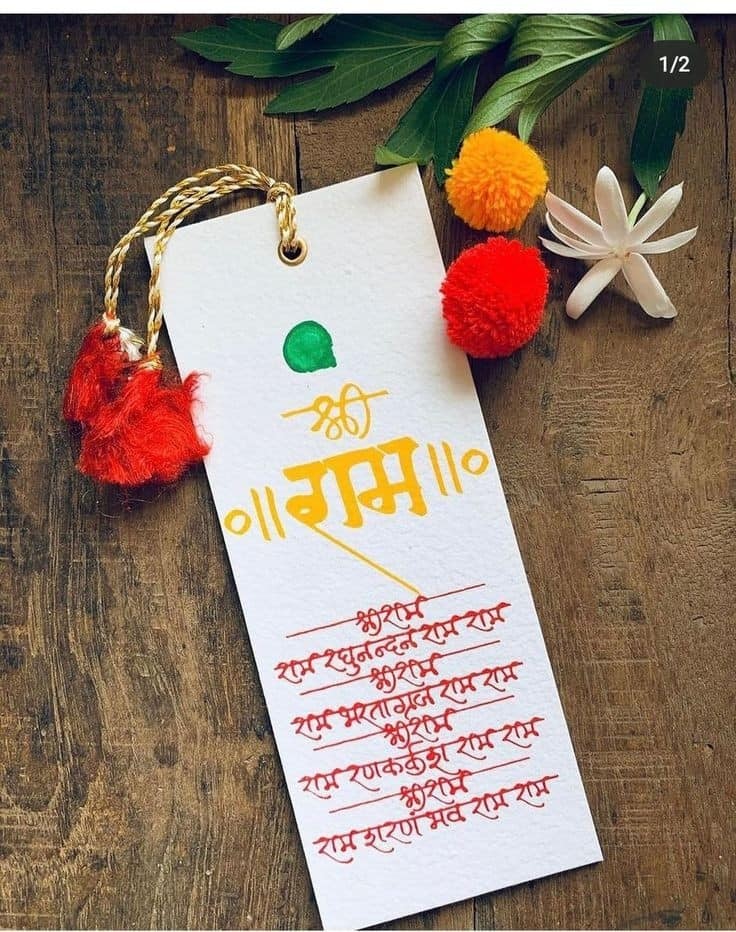 1/2
श्री
०॥राम॥०
श्रीराम
राम रघुनन्दन राम राम
श्रीराम
राम भरताग्रज राम राम
श्रीराम
राम रणकर्कश राम राम
श्रीराम
राम शरणं भव राम राम